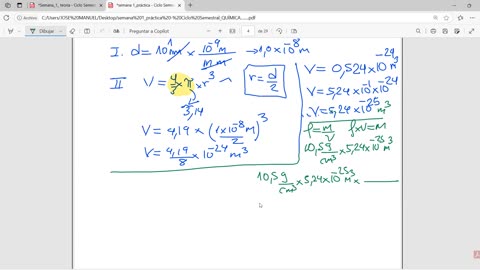 *semana_1_ teoria - Ciclo Semes
*semana 1_práctica - Ciclo Sem
Archivo
C:/Users/JOSE%20MANUEL/Desktop/semana%201_práctica%20-%20Ciclo%20Semestral_QUÍMICA_......pdf
4 de 19
I. d = 10 nm × 10⁻⁹ m / nm → 1,0 × 10⁻⁸ m
II V = 4/3 × π × r³ ~ r = d/2
3,14
V = 4,19 × (1×10⁻⁸ m / 2)³
V = 4,19/8 × 10⁻²⁴ m³
V = 0,524 × 10⁻²⁴ m³
V = 5,24 × 10⁻¹ × 10⁻²⁴
V = 5,24 × 10⁻²⁵ m³
ρ = m/V ρ×V = m
10,5 g/cm³ × 5,24 × 10⁻²⁵ m³
10,5 g/cm³ × 5,24 × 10⁻²⁵ m³ ×